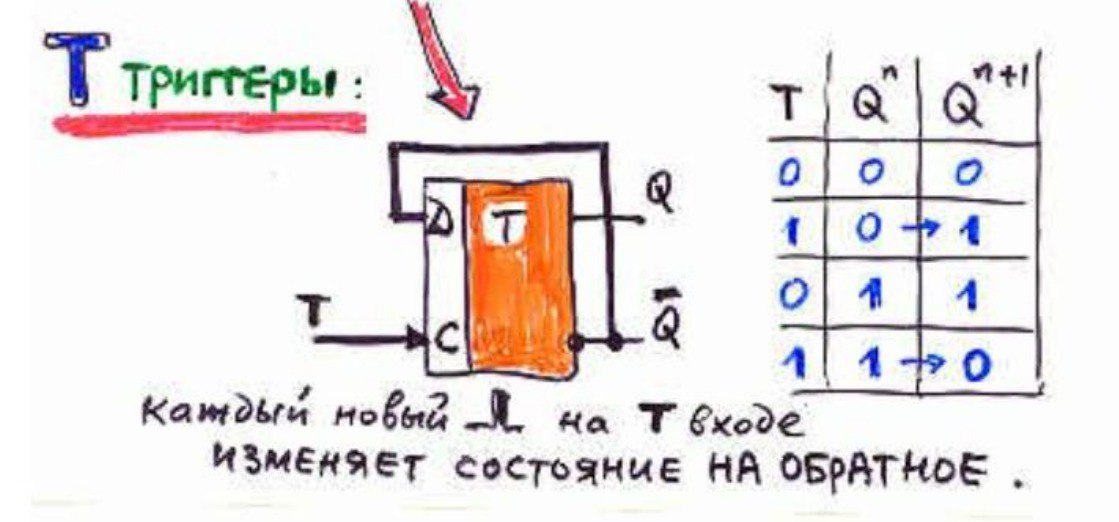 Т триггеры:
D T Q
T C Q̅
T Qⁿ Qⁿ⁺¹
0 0 0
1 0 → 1
0 1 1
1 1 → 0
каждый новый на Т входе
ИЗМЕНЯЕТ СОСТОЯНИЕ НА ОБРАТНОЕ.